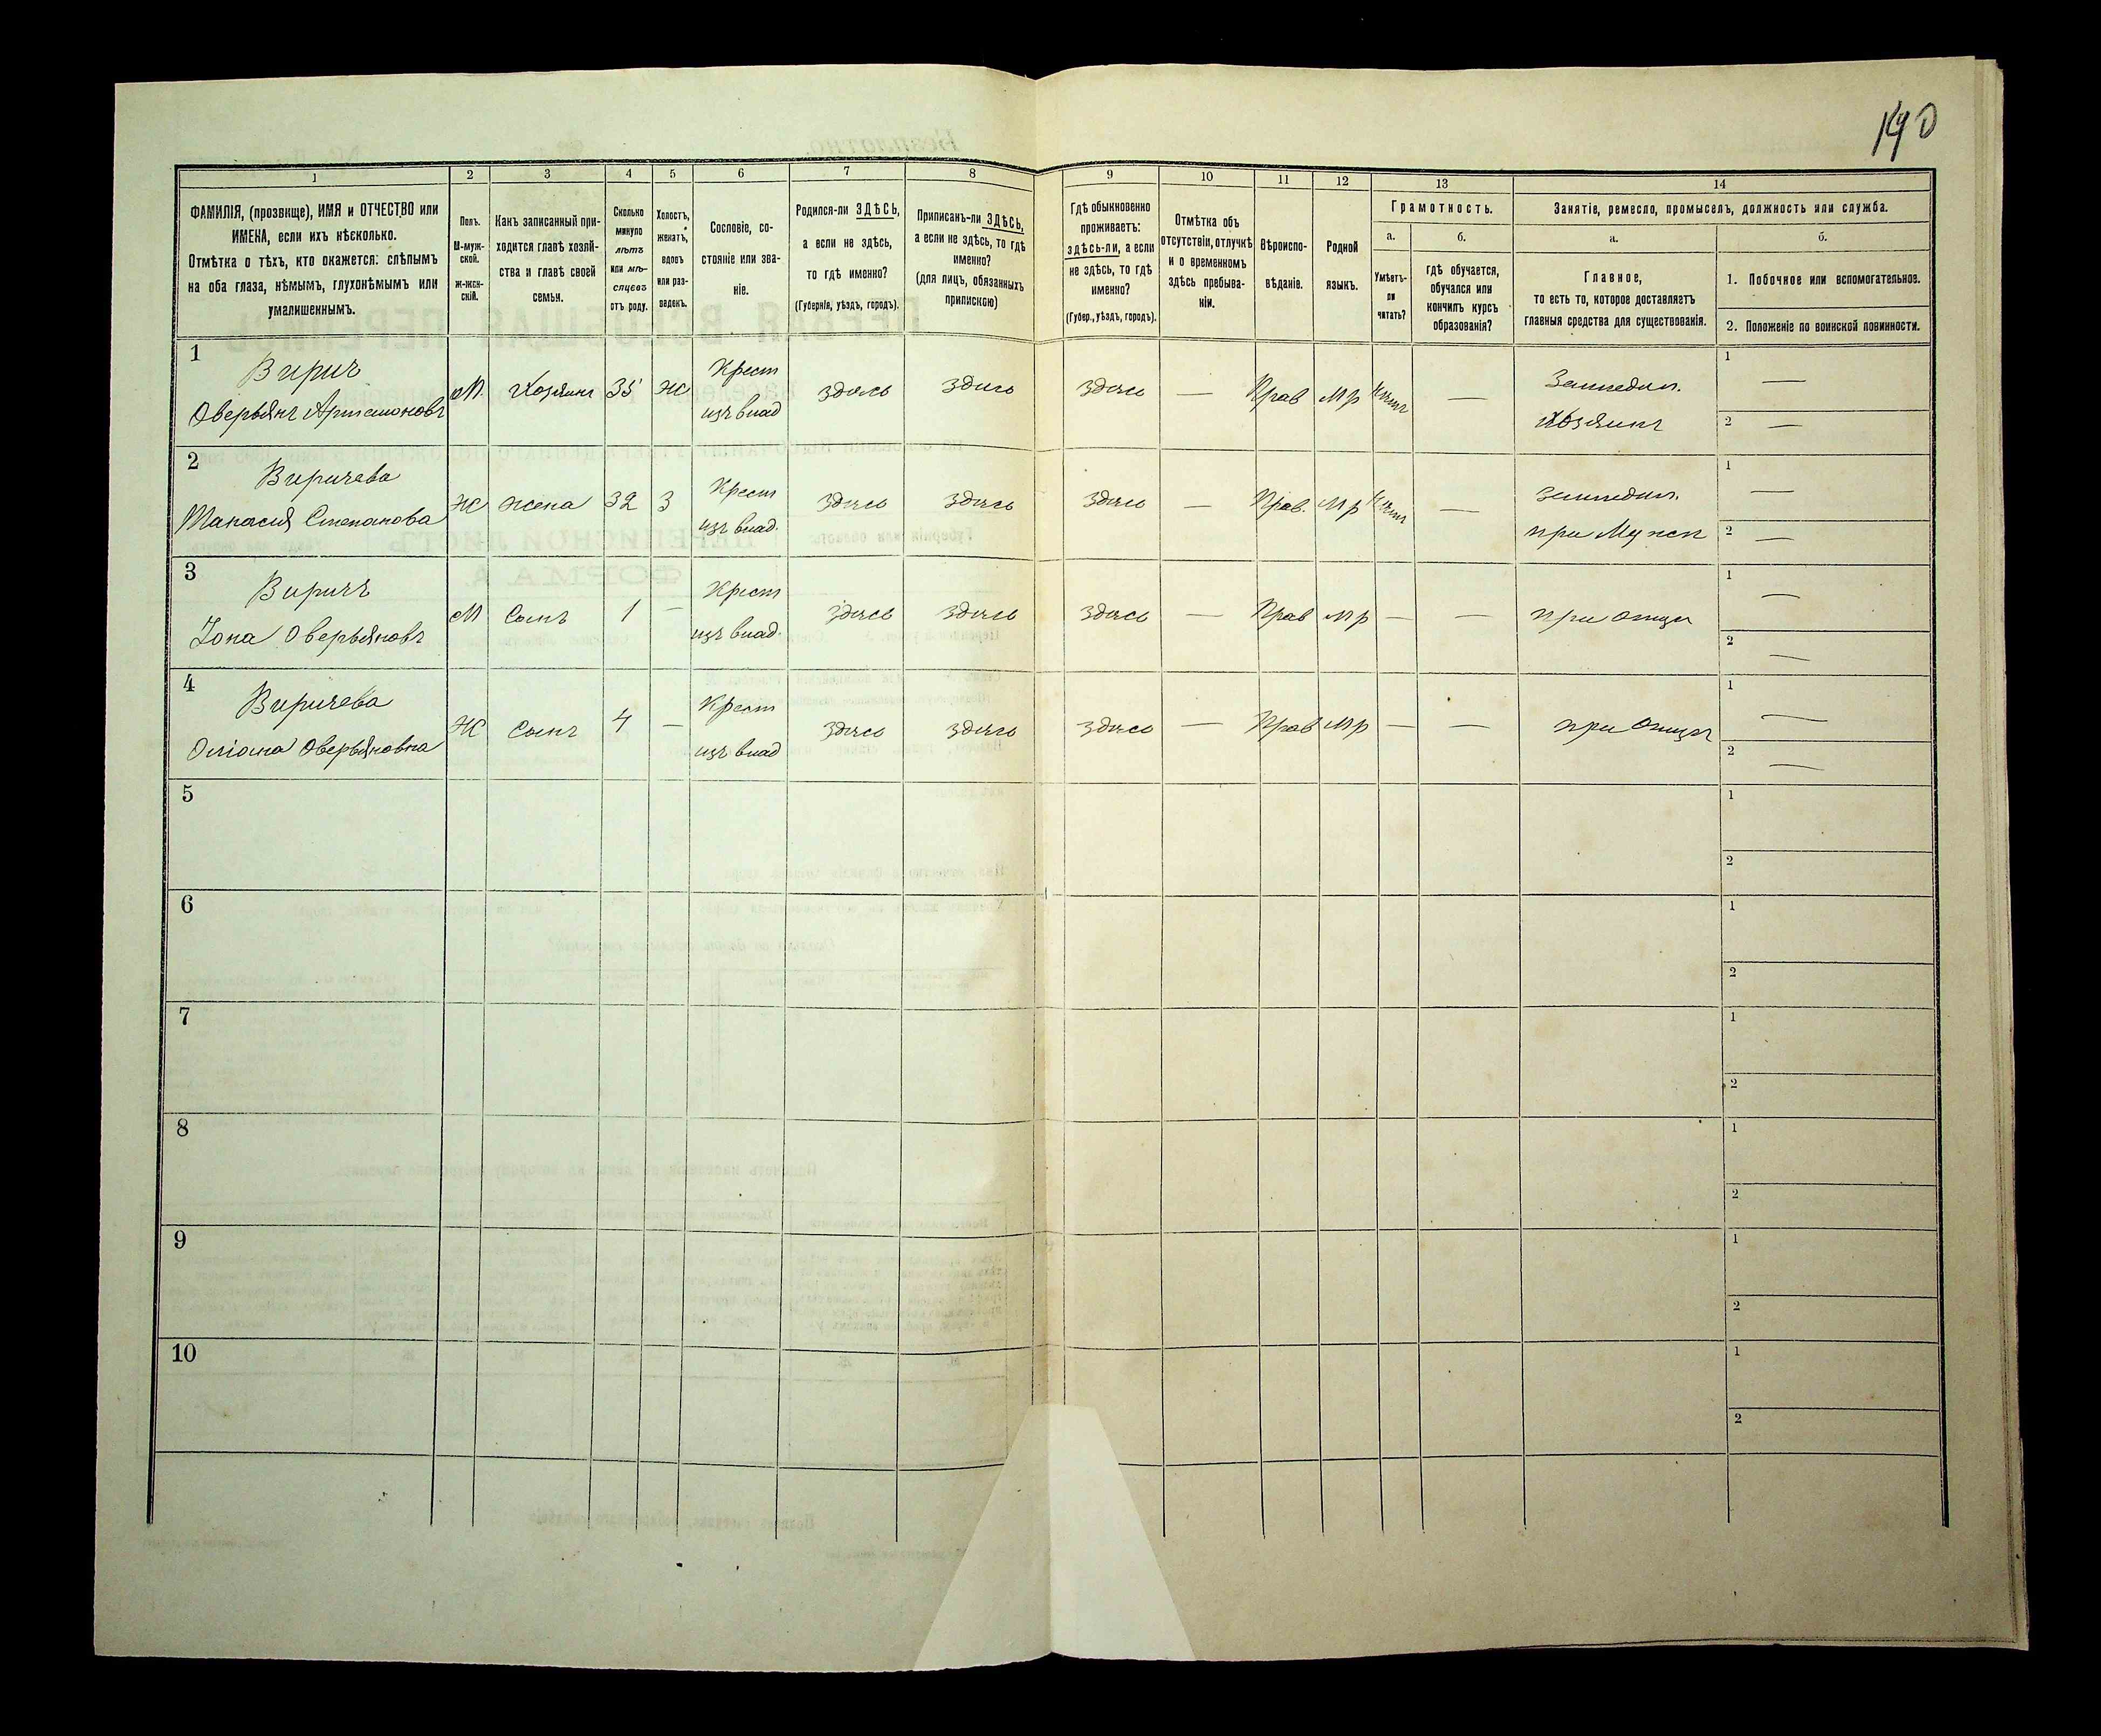 140
1 2 3 4 5 6 7 8 9 10 11 12 13 14
ФАМИЛІЯ, (прозвище), ИМЯ и ОТЧЕСТВО или
ИМЕНА, если ихъ нѣсколько.
Отмѣтка о тѣхъ, кто окажется: слѣпымъ
на оба глаза, нѣмымъ, глухонѣмымъ или
умалишеннымъ.
Полъ.
М-муж-
ской.
ж-жен-
скій.
Какъ записанный при-
ходится главѣ хозяй-
ства и главѣ своей
семьи.
Сколько
минуло
лѣтъ
или мѣ-
сяцевъ
отъ роду.
Холостъ,
женатъ,
вдовъ
или раз-
веденъ.
Сословіе, со-
стояніе или зва-
ніе.
Родился-ли ЗДѢСЬ,
а если не здѣсь,
то гдѣ именно?
(Губернія, уѣздъ, городъ).
Приписанъ-ли ЗДѢСЬ,
а если не здѣсь, то гдѣ
именно?
(для лицъ, обязанныхъ
припискою)
Гдѣ обыкновенно
проживаетъ:
здѣсь-ли, а если
не здѣсь, то гдѣ
именно?
(Губер., уѣздъ, городъ).
Отмѣтка объ
отсутствіи, отлучкѣ
и о временномъ
здѣсь пребыва-
ніи.
Вѣроиспо-
вѣданіе.
Родной
языкъ.
Грамотность.
а.
Умѣетъ-
ли
читать?
б.
гдѣ обучается,
обучался или
кончилъ курсъ
образованія?
Занятіе, ремесло, промыселъ, должность или служба.
а.
Главное,
то есть то, которое доставляетъ
главныя средства для существованія.
б.
1. Побочное или вспомогательное.
2. Положеніе по воинской повинности.
1
Виричъ
Оверьянъ Артамоновъ
М. Хозяинъ 35 ж
Крест
изъ влад
здѣсь здѣсь здѣсь — Прав мр нѣтъ —
Земледѣл.
Хозяинъ
1 —
2 —
2
Виричева
Степанова
Ж жена 32 з
Крест
изъ влад.
здѣсь здѣсь здѣсь — Прав. мр нѣтъ —
Земледѣл.
при Мужѣ
1 —
2 —
3
Виричъ
Іона Оверьяновъ
М Сынъ 1 —
Крест
изъ влад.
здѣсь здѣсь здѣсь — Прав мр — —
при отцѣ
1 —
2 —
4
Виричева
Оверьяновна
Ж Сынъ 4 —
Крест
изъ влад
здѣсь здѣсь здѣсь — Прав мр — —
при отцѣ
1 —
2 —
5
1
2
6
1
2
7
1
2
8
1
2
9
1
2
10
1
2